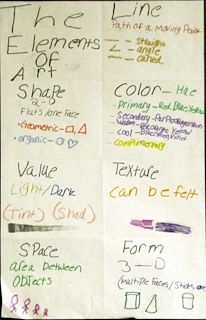 The
Elements
Of
Art
Line
Path of a Moving Point
— straight
angle
— curved
Shape
2-D
Flat & one Face
• Geometric -
• organic -
Color - Hue
Primary - Red Blue Yellow
Secondary -
Warm -
Cool -
Complimentary
Value
Light / Dark
(Tint) (Shad)
Texture
Can be felt
Space
area between
Objects
Form
3 — D
(Multiple Faces/